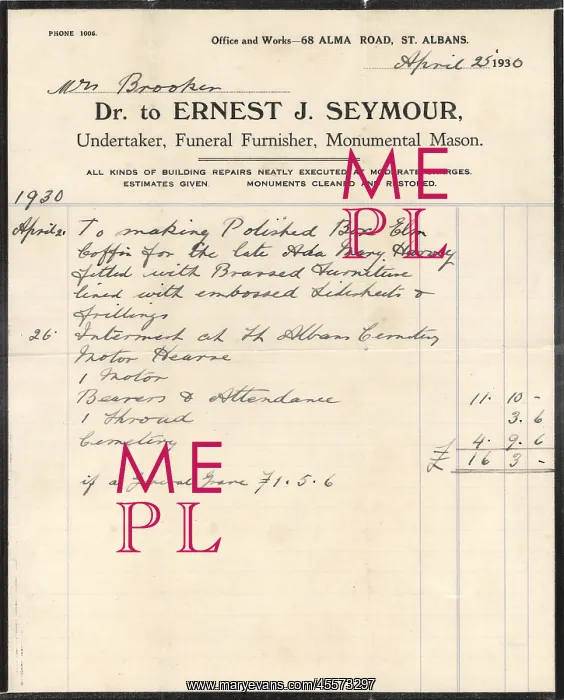 PHONE 1006.
Office and Works—68 ALMA ROAD, ST. ALBANS.
April 25 1930
Mrs Brooker
Dr. to ERNEST J. SEYMOUR,
Undertaker, Funeral Furnisher, Monumental Mason.
ALL KINDS OF BUILDING REPAIRS NEATLY EXECUTED AT MODERATE CHARGES.
ESTIMATES GIVEN. MONUMENTS CLEANED AND RESTORED.
ME
PL
1930
April To making Polished Box Elm
Coffin for the late Ada Mary
fitted with Brassed Furniture
lined with embossed Sidesheets &
frillings
26 Interment at St Albans Cemetery
Motor Hearse
1 Motor
Bearers & Attendance 11. 10 -
1 Shroud 3. 6
Cemetery 4. 9. 6
£ 16 3 -
ME
PL
if a Grave £1. 5. 6
www.maryevans.com/45573297